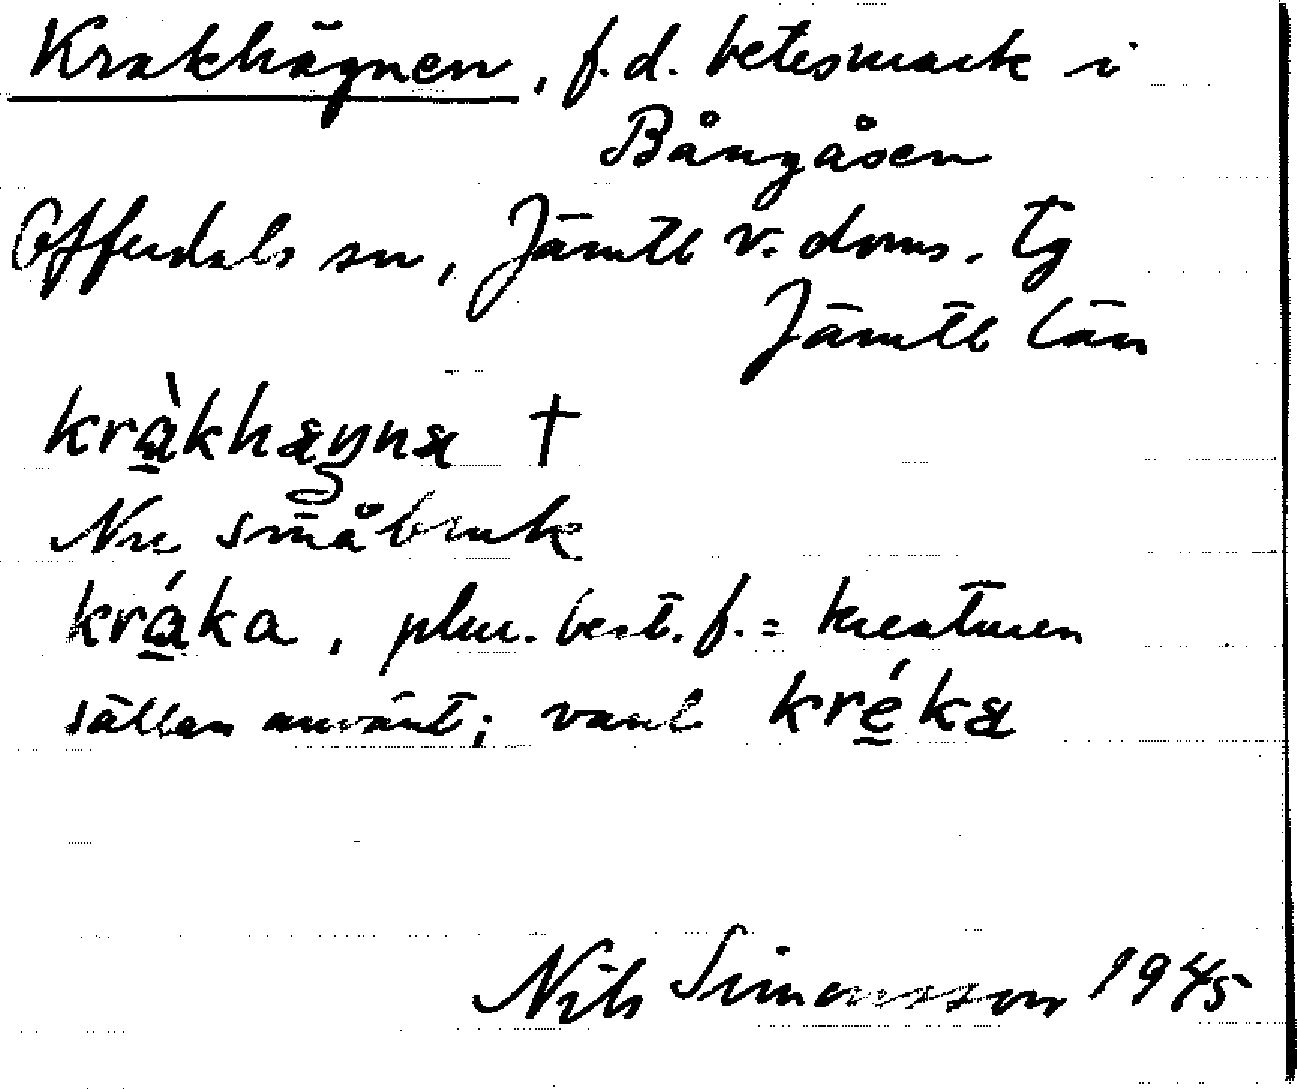 Krakhägnen, f.d. betesmark i
Bångåsen
Offerdals sn, Jämtl v. doms. tg
Jämtl län
kràkhæŋnæ †
Nu småbruk
kráka, plur. best. f. = kreaturen
sällan använt; vanl krékæ
Nils Simonsson 1945